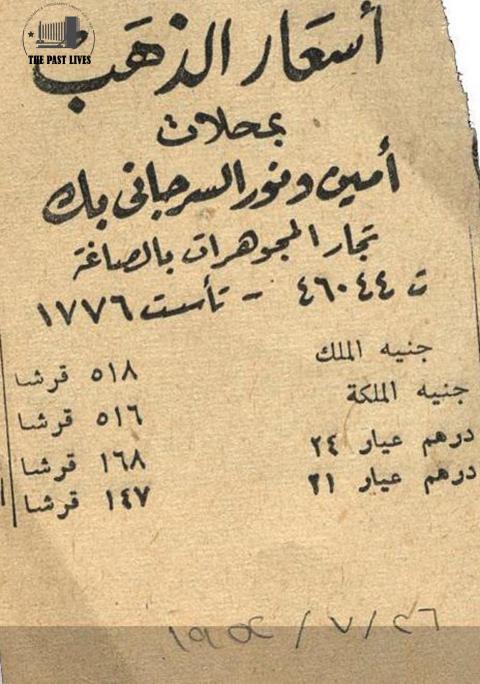 THE PAST LIVES
أسعار الذهب
بمحلات
أمين ونور السرجانى بك
تجار المجوهرات بالصاغة
ت ٤٦٠٤٤ - تأسست ١٧٧٦
جنيه الملك ٥١٨ قرشا
جنيه الملكة ٥١٦ قرشا
درهم عيار ٢٤ ١٦٨ قرشا
درهم عيار ٢١ ١٤٧ قرشا
٢٦ / ٧ / ١٩٥٢